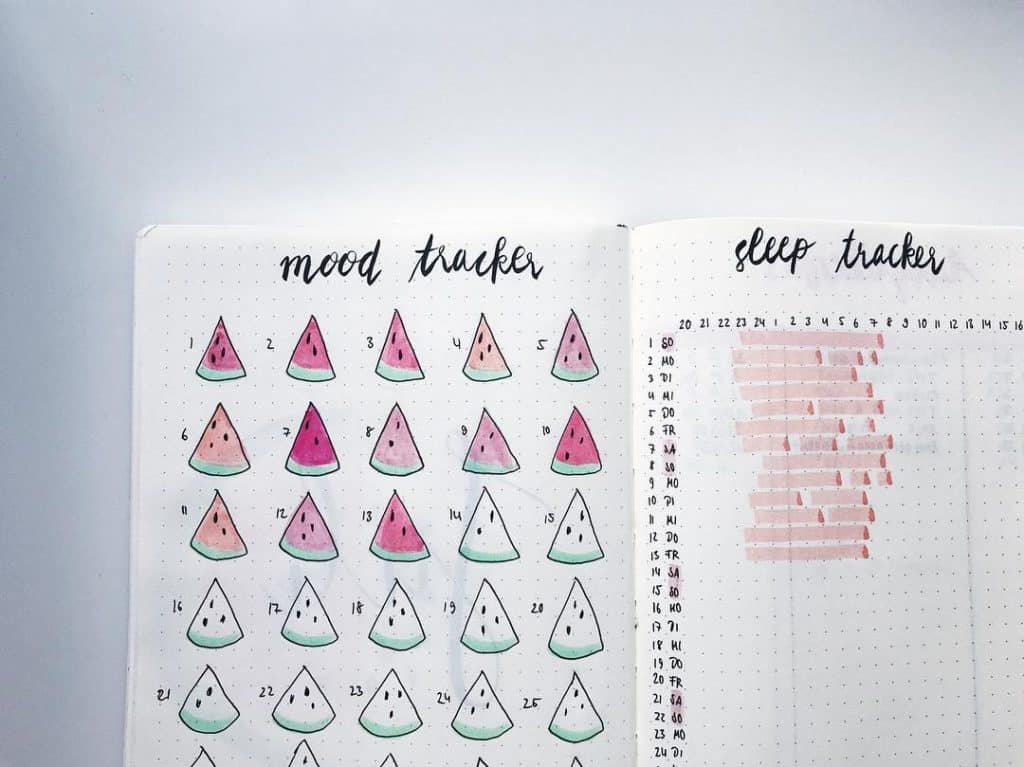 mood tracker
1 2 3 4 5
6 7 8 9 10
11 12 13 14 15
16 17 18 19 20
21 22 23 24 25
sleep tracker
20 21 22 23 24 1 2 3 4 5 6 7 8 9 10 11 12 13 14 15 16
1 SO
2 MO
3 DI
4 MI
5 DO
6 FR
7 SA
8 SO
9 MO
10 DI
11 MI
12 DO
13 FR
14 SA
15 SO
16 MO
17 DI
18 MI
19 DO
20 FR
21 SA
22 SO
23 MO
24 DI